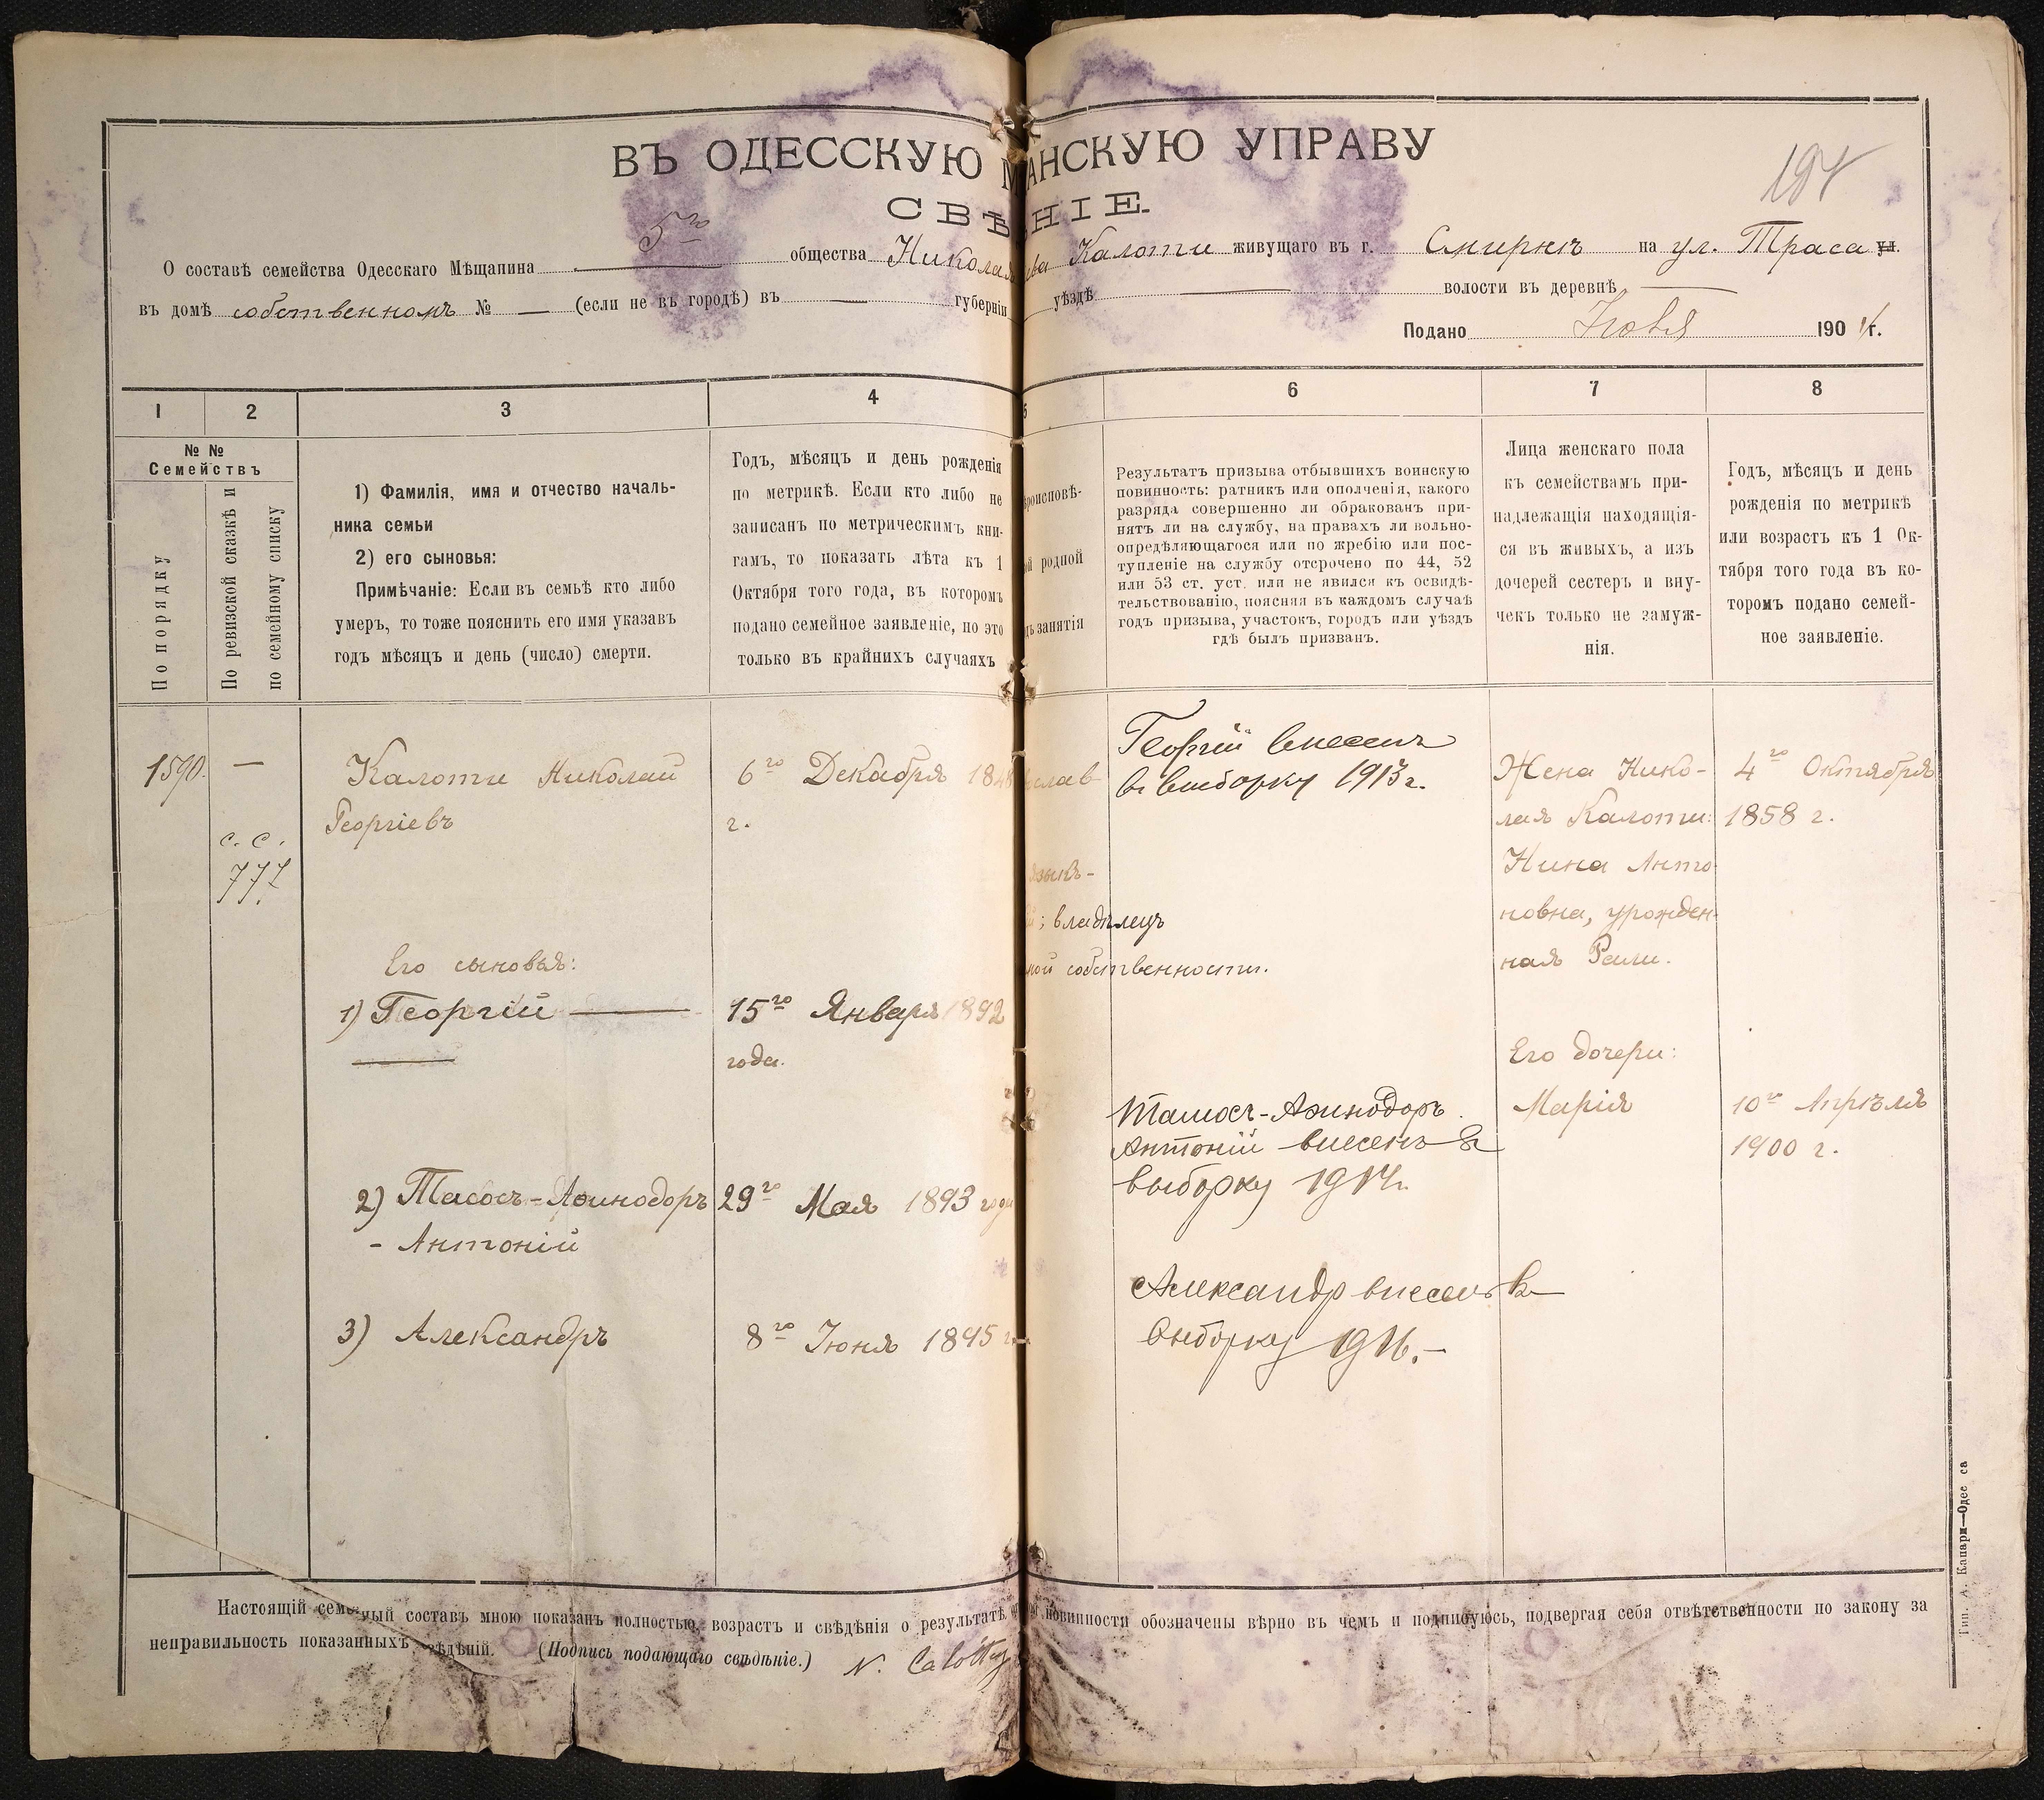 ВЪ ОДЕССКУЮ М АНСКУЮ УПРАВУ
197
СВѢ НІЕ.
О составѣ семейства Одесскаго Мѣщанина 5го общества Никола Калоти живущаго въ г. Смирнѣ на ул. Траса ул.
въ домѣ собственномъ № — (если не въ городѣ) въ — губерніи уѣздѣ — волости въ деревнѣ —
Подано 190 г.
1 2 3 4 5 6 7 8
№ №
Семействъ
По порядку
По ревизской сказкѣ и
по семейному списку
1) Фамилія, имя и отчество началь-
ника семьи
2) его сыновья:
Примѣчаніе: Если въ семьѣ кто либо
умеръ, то тоже пояснить его имя указавъ
годъ мѣсяцъ и день (число) смерти.
Годъ, мѣсяцъ и день рожденія
по метрикѣ. Если кто либо не
записанъ по метрическимъ кни-
гамъ, то показать лѣта къ 1
Октября того года, въ которомъ
подано семейное заявленіе, но это
только въ крайнихъ случаяхъ
роисповѣ-
ой родной
занятія
Результатъ призыва отбывшихъ воинскую
повинность: ратникъ или ополченія, какого
разряда совершенно ли обракованъ при-
нятъ ли на службу, на правахъ ли вольно-
опредѣляющагося или по жребію или пос-
тупленіе на службу отсрочено по 44, 52
или 53 ст. уст. или не явился къ освидѣ-
тельствованію, поясняя въ каждомъ случаѣ
годъ призыва, участокъ, городъ или уѣздъ
гдѣ былъ призванъ.
Лица женскаго пола
къ семействамъ при-
надлежащія находящія-
ся въ живыхъ, а изъ
дочерей сестеръ и вну-
чекъ только не замуж-
нія.
Годъ, мѣсяцъ и день
рожденія по метрикѣ
или возрастъ къ 1 Ок-
тября того года въ ко-
торомъ подано семей-
ное заявленіе.
1590.
—
с. с.
777.
Калоти Николай
Георгіевъ
6го Декабря 184
г.
слав
языкъ-
; владѣлецъ
ной собственности.
Георгій внесенъ
въ выборку 1913 г.
Жена Нико-
лая Калоти:
Нина Анто-
новна, урожден-
ная Рели.
4го Октября
1858 г.
Его сыновья:
1) Георгій —
15го Января 1892
года.
Его дочери:
Марія
10го Апрѣля
1900 г.
2) Тасосъ-Аѳинодоръ
- Антоній
29го Мая 1893 года
Тасосъ-Аѳинодоръ.
Антоній внесенъ въ
выборку 1914 г.
3) Александръ
8го Іюня 1895 г.
Александр внесенъ въ
выборку 1916.—
Настоящій семейный составъ мною показанъ полностью, возрастъ и свѣдѣнія о результатѣ повинности обозначены вѣрно въ чемъ и подписуюсь, подвергая себя отвѣтственности по закону за
неправильность показанныхъ свѣдѣній. (Подпись подающаго свѣдѣніе.) N. Calotty
Тип. А. Капари—Одесса